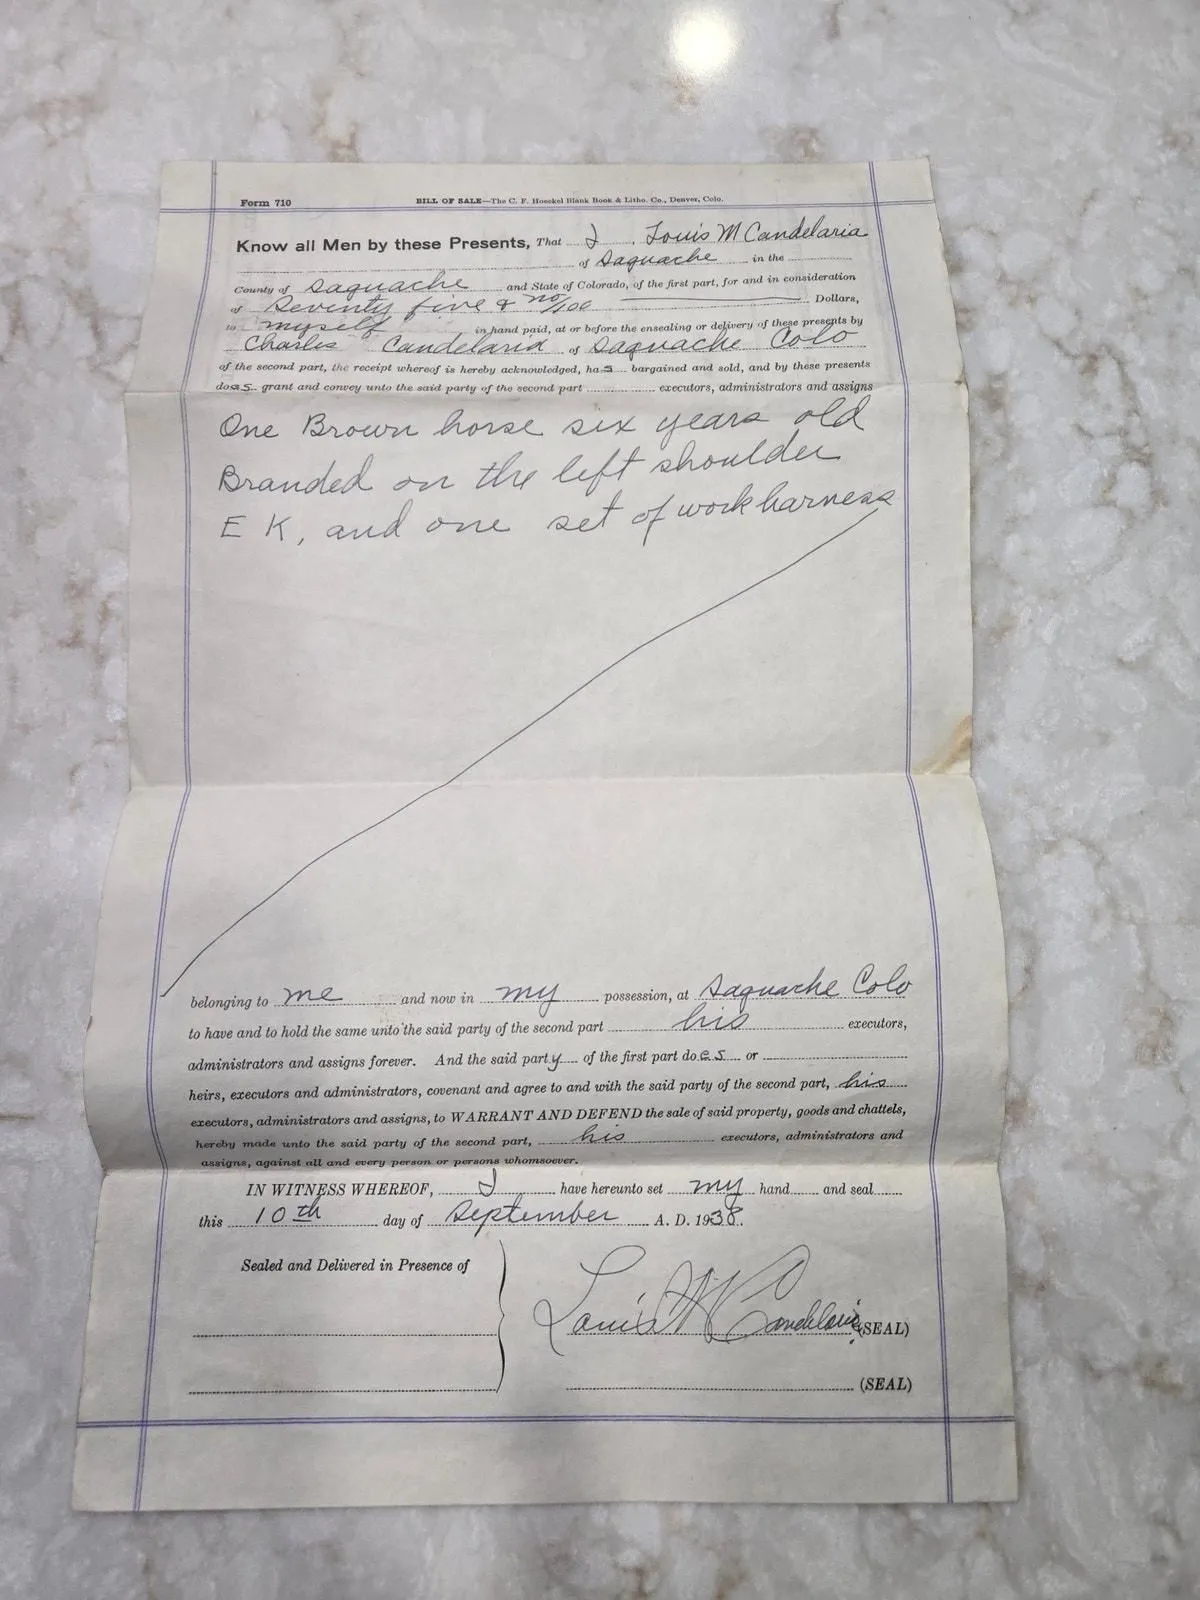 Form 710 BILL OF SALE—The C. F. Hoeckel Blank Book & Litho. Co., Denver, Colo.
Know all Men by these Presents, That I Louis M Candelaria
of Saguache in the
County of Saguache and State of Colorado, of the first part, for and in consideration
of Seventy five & no/100 Dollars,
to myself in hand paid, at or before the ensealing or delivery of these presents by
Charles Candelaria of Saguache Colo
of the second part, the receipt whereof is hereby acknowledged, has bargained and sold, and by these presents
does grant and convey unto the said party of the second part executors, administrators and assigns
One Brown horse six years old
Branded on the left shoulder
E K, and one set of work harness
belonging to me and now in my possession, at Saguache Colo
to have and to hold the same unto the said party of the second part his executors,
administrators and assigns forever. And the said party of the first part does or
heirs, executors and administrators, covenant and agree to and with the said party of the second part, his
executors, administrators and assigns, to WARRANT AND DEFEND the sale of said property, goods and chattels,
hereby made unto the said party of the second part, his executors, administrators and
assigns, against all and every person or persons whomsoever.
IN WITNESS WHEREOF, I have hereunto set my hand and seal
this 10th day of September A. D. 1938.
Sealed and Delivered in Presence of
Louis M Candelaria (SEAL)
(SEAL)